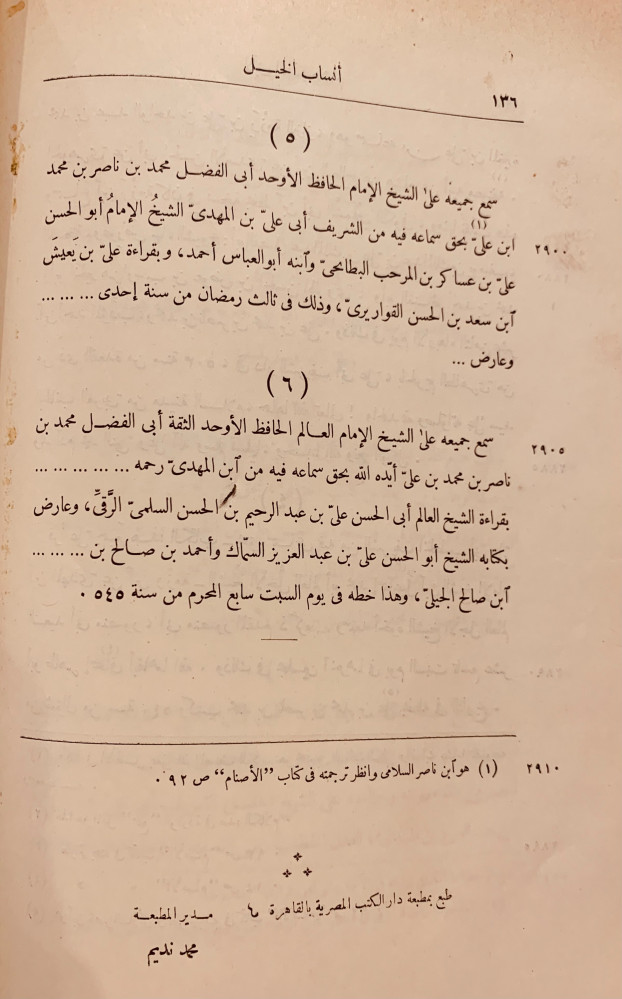 أنساب الخيل
١٣٦
(٥)
سمع جميعه على الشيخ الإمام الحافظ الأوحد أبى الفضل محمد بن ناصر بن محمد
ابن علىّ (١) بحق سماعه فيه من الشريف أبى علىّ بن المهدىّ الشيخُ الإمامُ أبو الحسن ٢٩٠٠
علىّ بن عساكر بن المرحب البطائحىّ وآبنه أبو العباس أحمد، وبقراءة علىّ بن يَعيشَ
آبن سعد بن الحسن القواريرىّ، وذلك فى ثالث رمضان من سنة إحدى ... ... ...
وعارض ...
(٦)
سمع جميعه على الشيخ الإمام العالم الحافظ الأوحد الثقة أبى الفضل محمد بن ٢٩٠٥
ناصر بن محمد بن علىّ أيّده الله بحق سماعه فيه من آبن المهدىّ رحمه ... ... ... ... ...
بقراءة الشيخ العالم أبى الحسن علىّ بن عبد الرحيم بن الحسن السلمىّ الرَّقىِّ، وعارض
بكتابه الشيخ أبو الحسن علىّ بن عبد العزيز السمّاك وأحمد بن صالح بن ... ... ...
آبن صالح الجيلىّ، وهذا خطه فى يوم السبت سابع المحرم من سنة ٥٤٥ .
٢٩١٠ (١) هو آبن ناصر السلامى وانظر ترجمته فى كتاب "الأصنام" ص ٩٢ .
طبع بمطبعة دار الكتب المصرية بالقاهرة
مدير المطبعة
محمد نديم